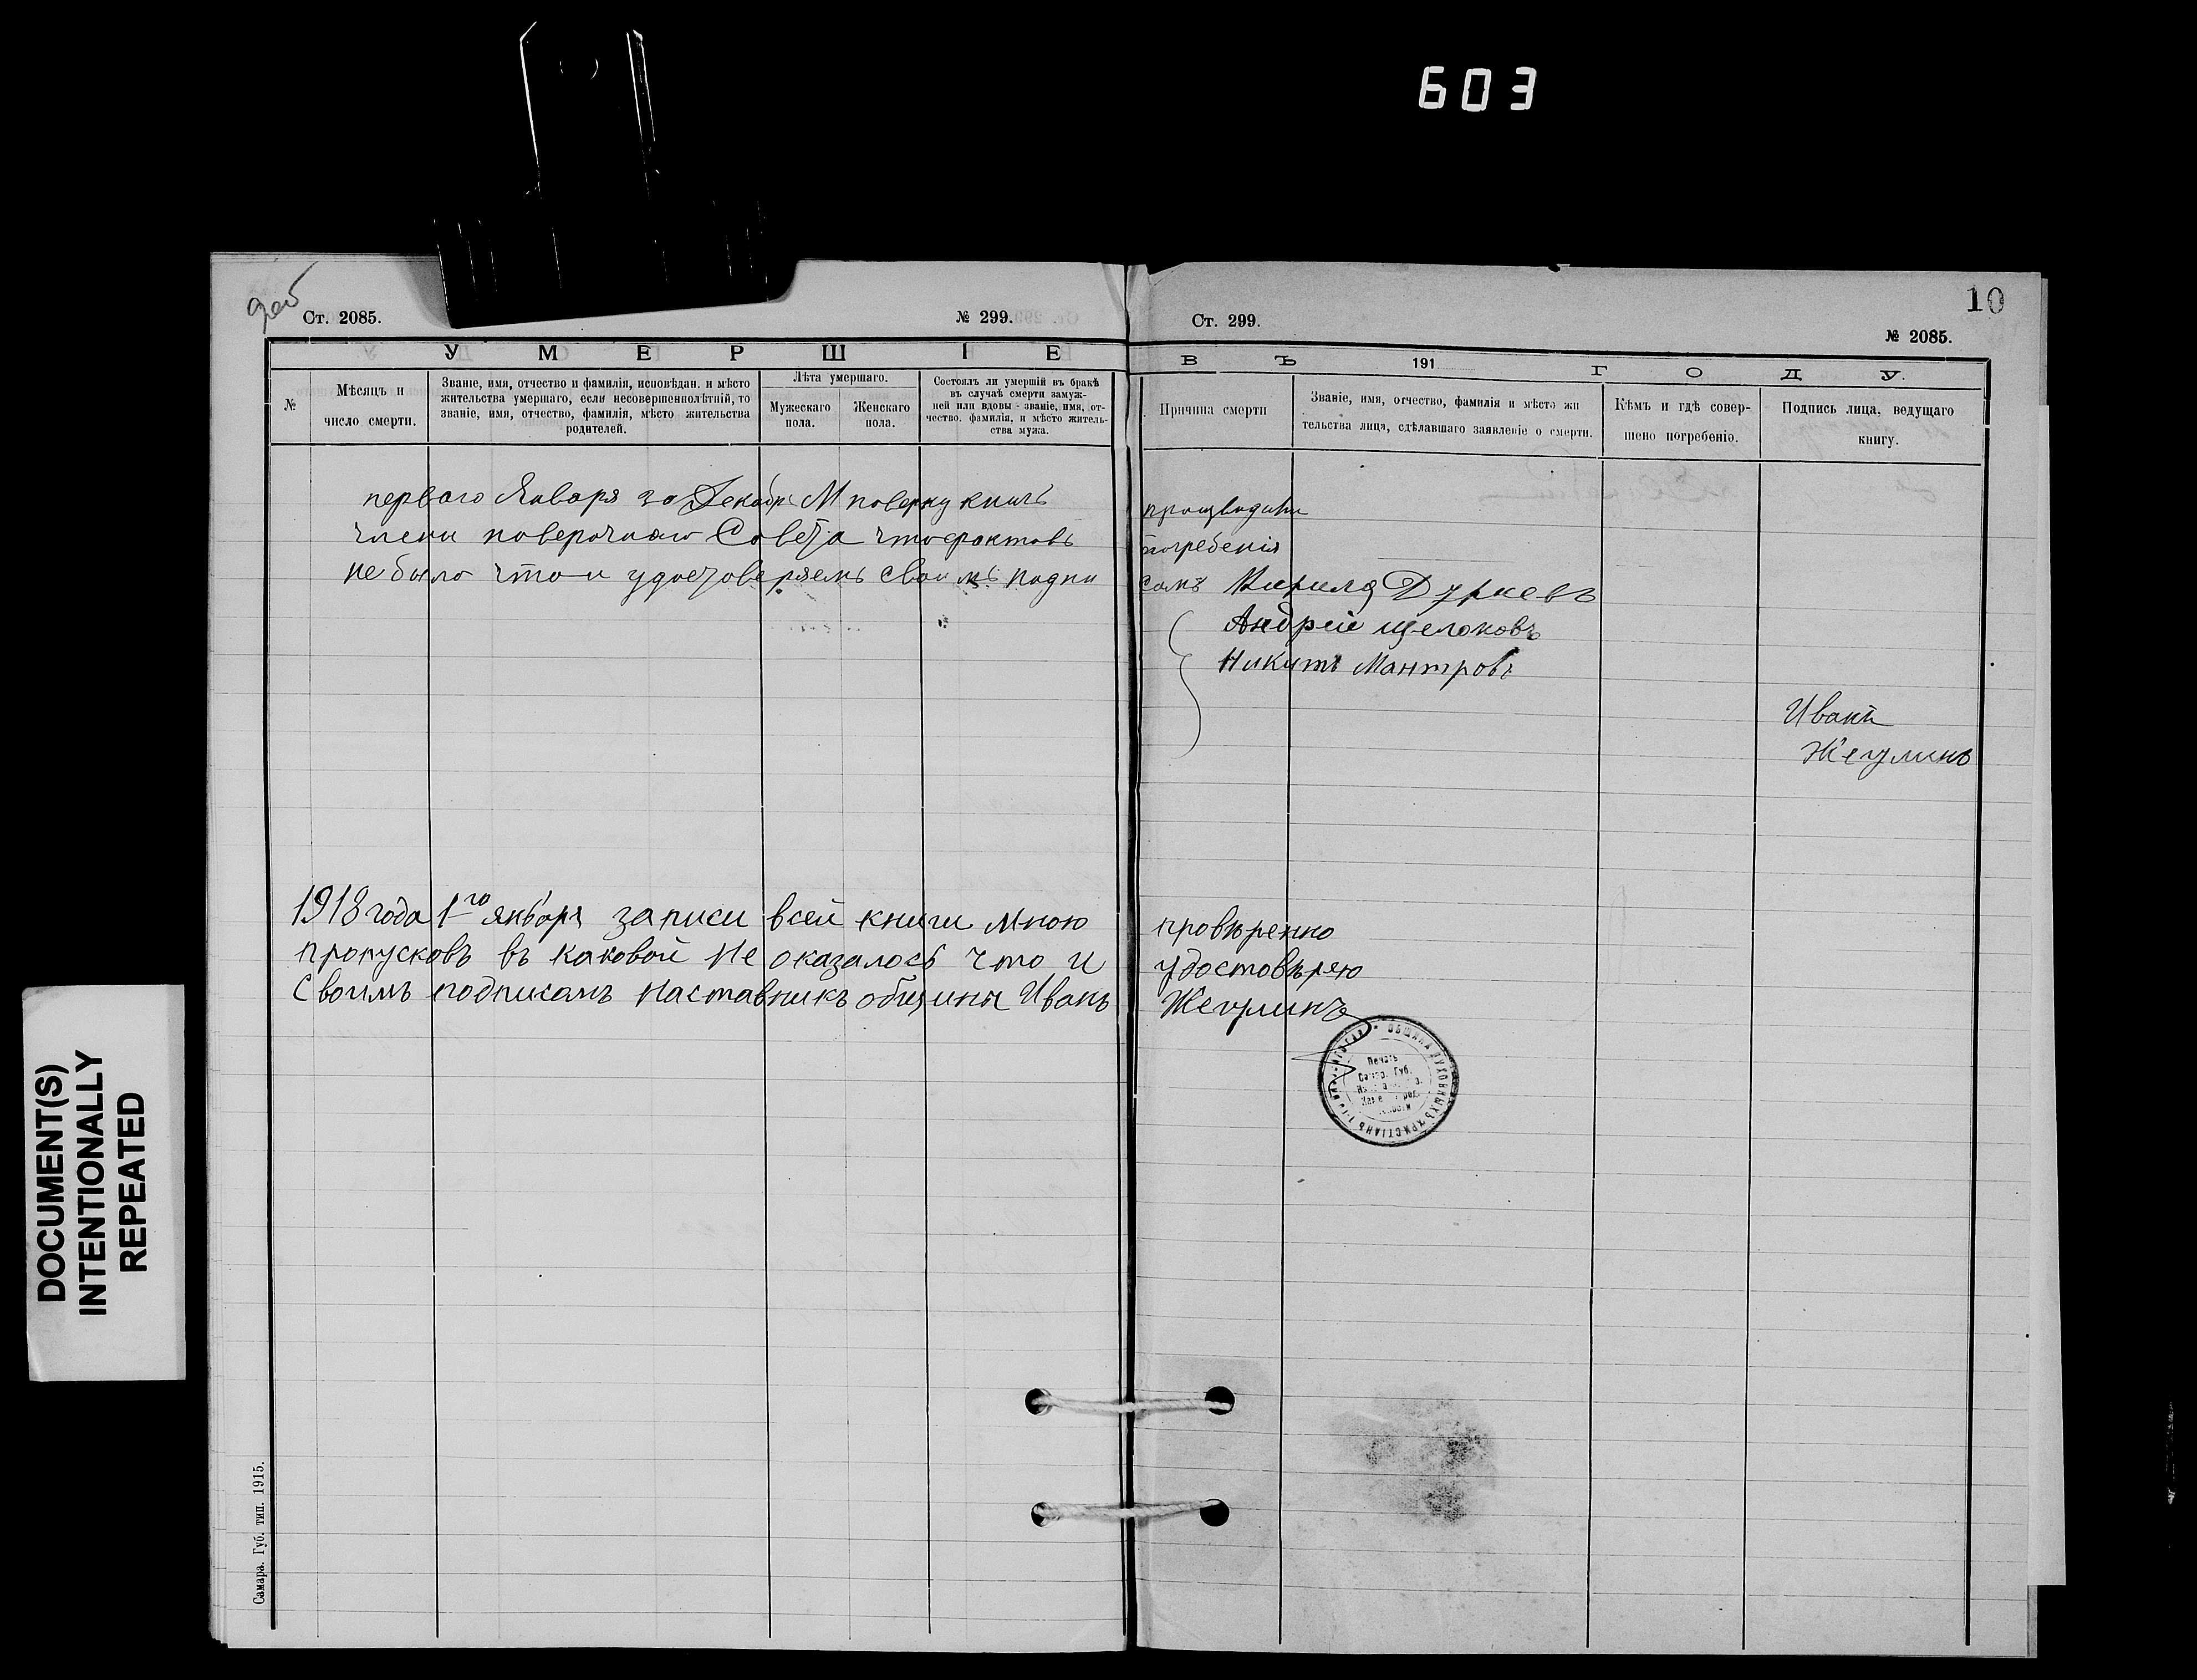 603
10
Ст. 2085.
№ 299.
Ст. 299.
№ 2085.
УМЕРШІЕ
ВЪ 191 ГОДУ.
№
Мѣсяцъ и
число смерти.
Званіе, имя, отчество и фамилія, исповѣдан. и мѣсто
жительства умершаго, если несовершеннолѣтній, то
званіе, имя, отчество, фамилія, мѣсто жительства
родителей.
Лѣта умершаго.
Мужескаго
пола.
Женскаго
пола.
Состоялъ ли умершій въ бракѣ
въ случаѣ смерти замуж-
ней или вдовы - званіе, имя, от-
чество. фамилія, и мѣсто житель-
ства мужа.
Причина смерти
Званіе, имя, отчество, фамилія и мѣсто жи
тельства лица, сдѣлавшаго заявленіе о смерти.
Кѣмъ и гдѣ совер-
шено погребеніе.
Подпись лица, ведущаго
книгу.
перваго Января за Декабрь М поверку книгъ производили
члены поверочнаго Совета что фактовъ погребенія
не было что и удостоверяемъ своимъ подпи самъ Кирила Дуркевъ
Андрей Щелоковъ
Никитъ Мантровъ
Иванъ
Жегулинъ
1918 года 1го января записи всей книги мною провѣренно
пропусковъ въ каковой не оказалось что и удостовѣряю
Своимъ подписамъ наставникъ общины Иванъ Жегулинъ
ОБЩИНА ДУХОВНЫХЪ ХРИСТІАНЪ
Печать
Самар. Губ.
DOCUMENT(S)
INTENTIONALLY
REPEATED
Самара. Губ. тип. 1915.